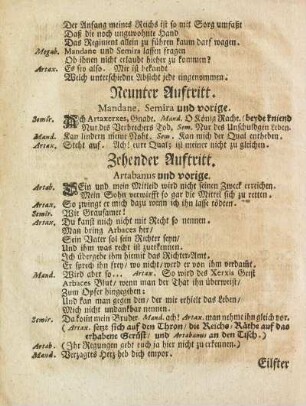 Der Anfang meines Reichs ist so mit Sorg umfaßt
Daß die noch ungewohnte Hand
Das Regiment allein zu führen kaum darf wagen.
Megab. Mandane und Semira lassen fragen
Ob ihnen nicht erlaubt hieher zu kommen?
Artax. Es sey also. Mir ist bekandt
Welch unterschiedene Absicht jede eingenommen.
Neunter Auftritt.
Mandane, Semira und vorige.
Semir. Ach Artaxerxes, Gnade. Mand. O König Rache. beyde kniend
Nur des Verbrechers Tod, Sem. Nur des Unschuldigen Leben.
Mand. Kan lindern meine Noth. Sem. Kan mich der Qual entheben.
Artax. Steht auf. Ach! eure Qual ist meiner nicht zu gleichen.
Zehender Auftritt.
Artabanus und vorige.
Artab. Dein und mein Mitleid wird nicht seinen Zweck erreichen.
Mein Sohn verwirfft so gar die Mittel sich zu retten.
Artax. So zwingt er mich dazu wenn ich ihn lasse tödten.
Semir. Wie Grausamer!
Artax. Du kanst mich nicht mit Recht so nennen.
Man bring Arbaces her/
Sein Vater sol sein Richter seyn/
und ihm was recht ist zuerkennen.
Ich übergebe ihm hiemit das Richter-Amt.
Er sprech ihn frey/ wo nicht/ werd er von ihm verdamt.
Mand. Wird aber so... Artax. So wird des Xerxis Geist
Arbaces Blut/ wenn man der That ihn überweist/
Zum Opfer hingegeben:
Und kan man gegen den/ der mir erhielt das Leben/
Mich nicht undanckbar nennen.
Semir. Da komt mein Bruder. Mand. ach! Artax. man nehme ihn gleich vor.
( Artax. setzt sich auf den Thron/ die Reichs-Räthe auf das
erhabene Gerüst/ und Artabanus an den Tisch.)
Artab. (Ihr Regungen gebt euch ja hier nicht zu erkennen.)
Mand. Verzagtes Herz heb dich empor.
Eilfter